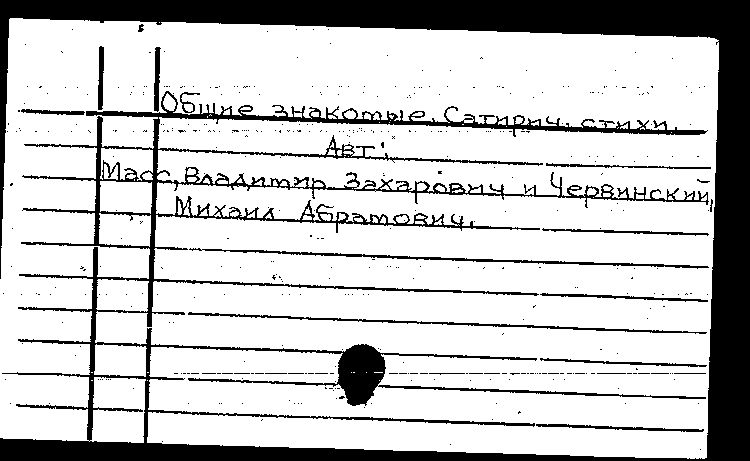 Общие знакомые. Сатирич. стихи.
Авт:
Масс, Владимир Захарович и Червинский,
Михаил Абрамович.